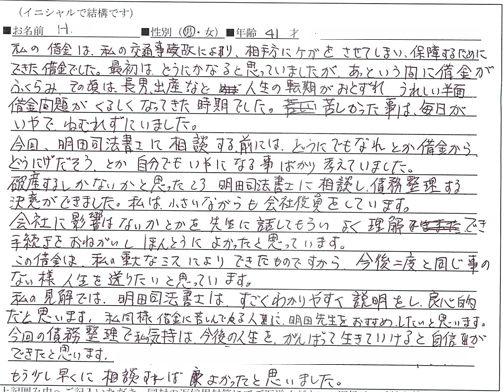 (イニシャルで結構です)
■お名前 H. ■性別(男・女) ■年齢 41 才
私の借金は、私の交通事故により、相手方にケガをさせてしまい、保障するために
できた借金でした。最初は、どうにかなると思っていましたが、あっという間に借金が
ふくらみ、その頃は、長男出産など 人生の転期がおとずれ うれしい半面
借金問題がくるしくなってきた時期でした。苦しかった事は、毎日が
いやで ねむれずにいました。
今回、明田司法書士に相談する前には、どうにでもなれとか借金から
どうにげだそう、とか自分でもいやになる事ばかり考えていました。
破産するしかないかと思ったころ 明田司法書士に相談し、債務整理する
決意ができました。私は、小さいながらも会社役員をしています。
会社に影響はないかとかを先生に話してもらい よく理解でき
手続きをおねがいし ほんとうに よかったと思っています。
この借金は、私の重大なミスによりできたものですから、今後二度と同じ事の
ない様 人生を送りたいと思っています。
私の見解では、明田司法書士は、すごくわかりやすく説明をし、良心的
だと思います。私同様 借金に苦しんで居る人達に、明田先生をおすすめしたいと思います。
今回の債務整理で私気持は 今後の人生を、がんばって生きていけると自信が
できたと思います。
もう少し早くに相談すれば 良かったと思いました。